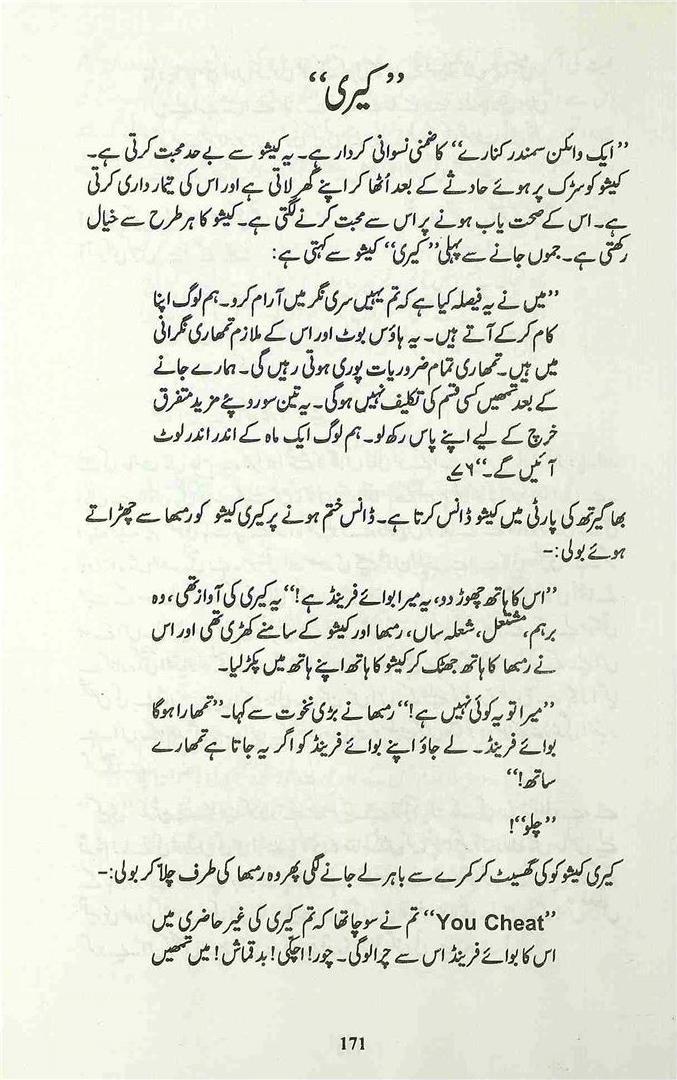 ”کیری“
”ایک وائلن سمندر کنارے“ کا ضمنی نسوانی کردار ہے۔ یہ کیشو سے بے حد محبت کرتی ہے۔
کیشو کو سڑک پر ہوئے حادثے کے بعد اُٹھا کر اپنے گھر لاتی ہے اور اس کی تیمار داری کرتی
ہے۔ اس کے صحت یاب ہونے پر اس سے محبت کرنے لگتی ہے۔ کیشو کا ہر طرح سے خیال
رکھتی ہے۔ جموں جانے سے پہلی ”کیری“ کیشو سے کہتی ہے:
”میں نے یہ فیصلہ کیا ہے کہ تم یہیں سری نگر میں آرام کرو۔ ہم لوگ اپنا
کام کر کے آتے ہیں۔ یہ ہاؤس بوٹ اور اس کے ملازم تمھاری نگرانی
میں ہیں۔ تمھاری تمام ضروریات پوری ہوتی رہیں گی۔ ہمارے جانے
کے بعد تمھیں کسی قسم کی تکلیف نہیں ہوگی۔ یہ تین سو روپئے مزید متفرق
خرچ کے لیے اپنے پاس رکھ لو۔ ہم لوگ ایک ماہ کے اندر اندر لوٹ
آئیں گے۔“ ۷۶؎
بھاگیرتھ کی پارٹی میں کیشو ڈانس کرتا ہے۔ ڈانس ختم ہونے پر کیری کیشو کو رمبھا سے چھڑاتے
ہوئے بولی:-
”اس کا ہاتھ چھوڑ دو، یہ میرا بوائے فرینڈ ہے!“ یہ کیری کی آواز تھی، وہ
برہم، مشتعل، شعلہ ساں، رمبھا اور کیشو کے سامنے کھڑی تھی اور اس
نے رمبھا کا ہاتھ جھٹک کر کیشو کا ہاتھ اپنے ہاتھ میں پکڑ لیا۔
”میرا تو یہ کوئی نہیں ہے!“ رمبھا نے بڑی نخوت سے کہا۔ ”تمھارا ہوگا
بوائے فرینڈ۔ لے جاؤ اپنے بوائے فرینڈ کو اگر یہ جاتا ہے تمھارے
ساتھ!“
”چلو“!
کیری کیشو کو کی گھسیٹ کر کمرے سے باہر لے جانے لگی پھر وہ رمبھا کی طرف چلا کر بولی:-
”You Cheat“ تم نے سوچا تھا کہ تم کیری کی غیر حاضری میں
اس کا بوائے فرینڈ اس سے چرالوگی۔ چور! اچکّی! بدقماش! میں تمھیں
171